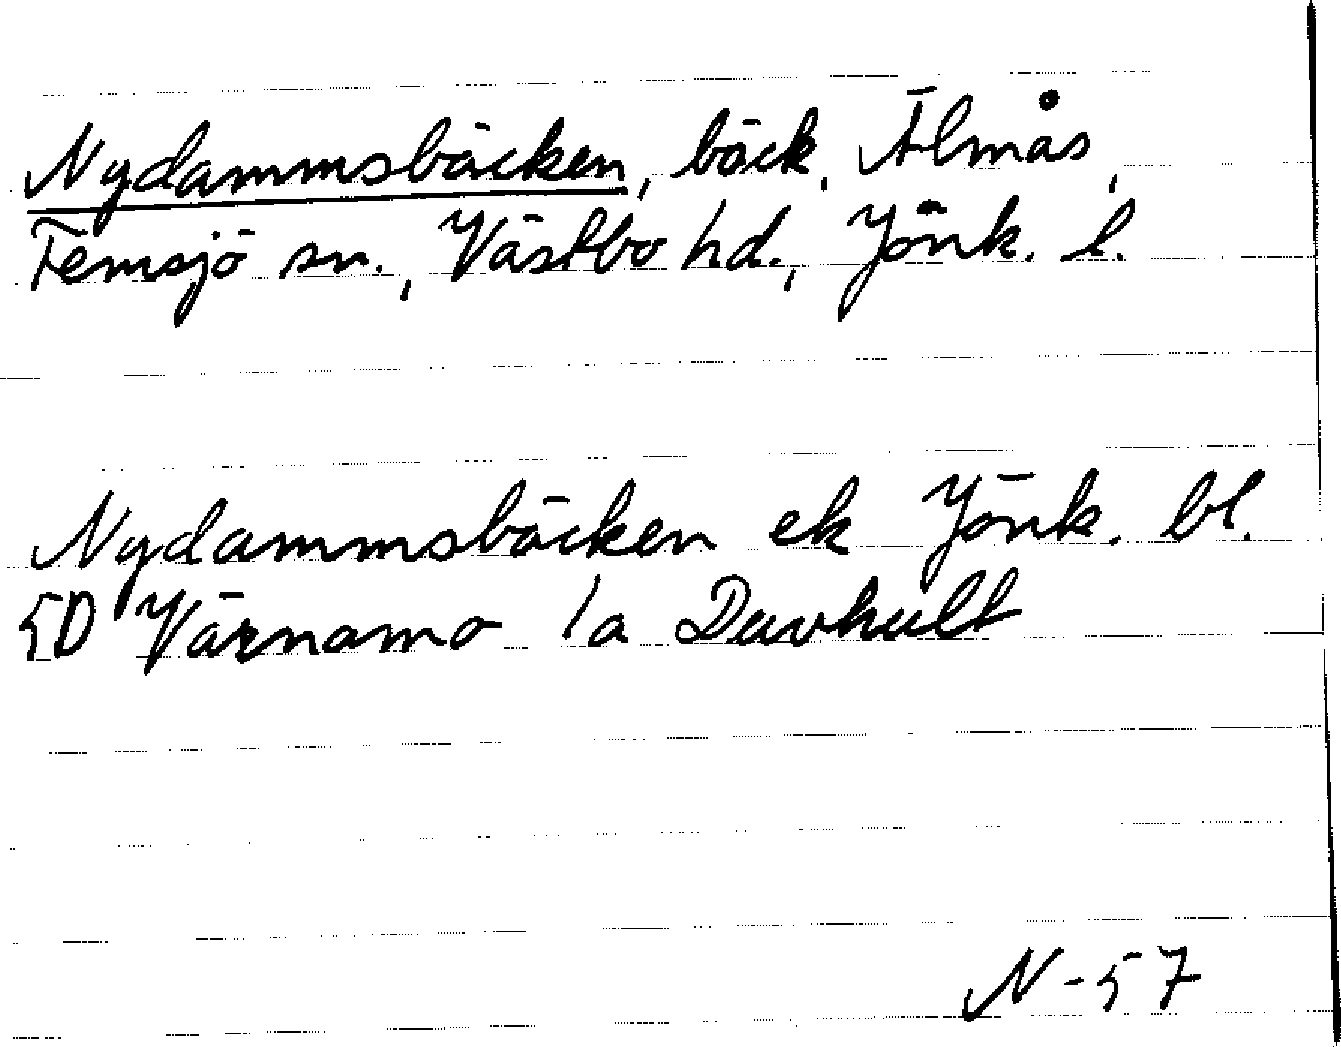 Nydammsbäcken, bäck, Älmås,
Femsjö sn., Västbo hd., Jönk. l.
Nydammsbäcken ek Jönk. bl.
5D Värnamo 1a Duvhult
N-57